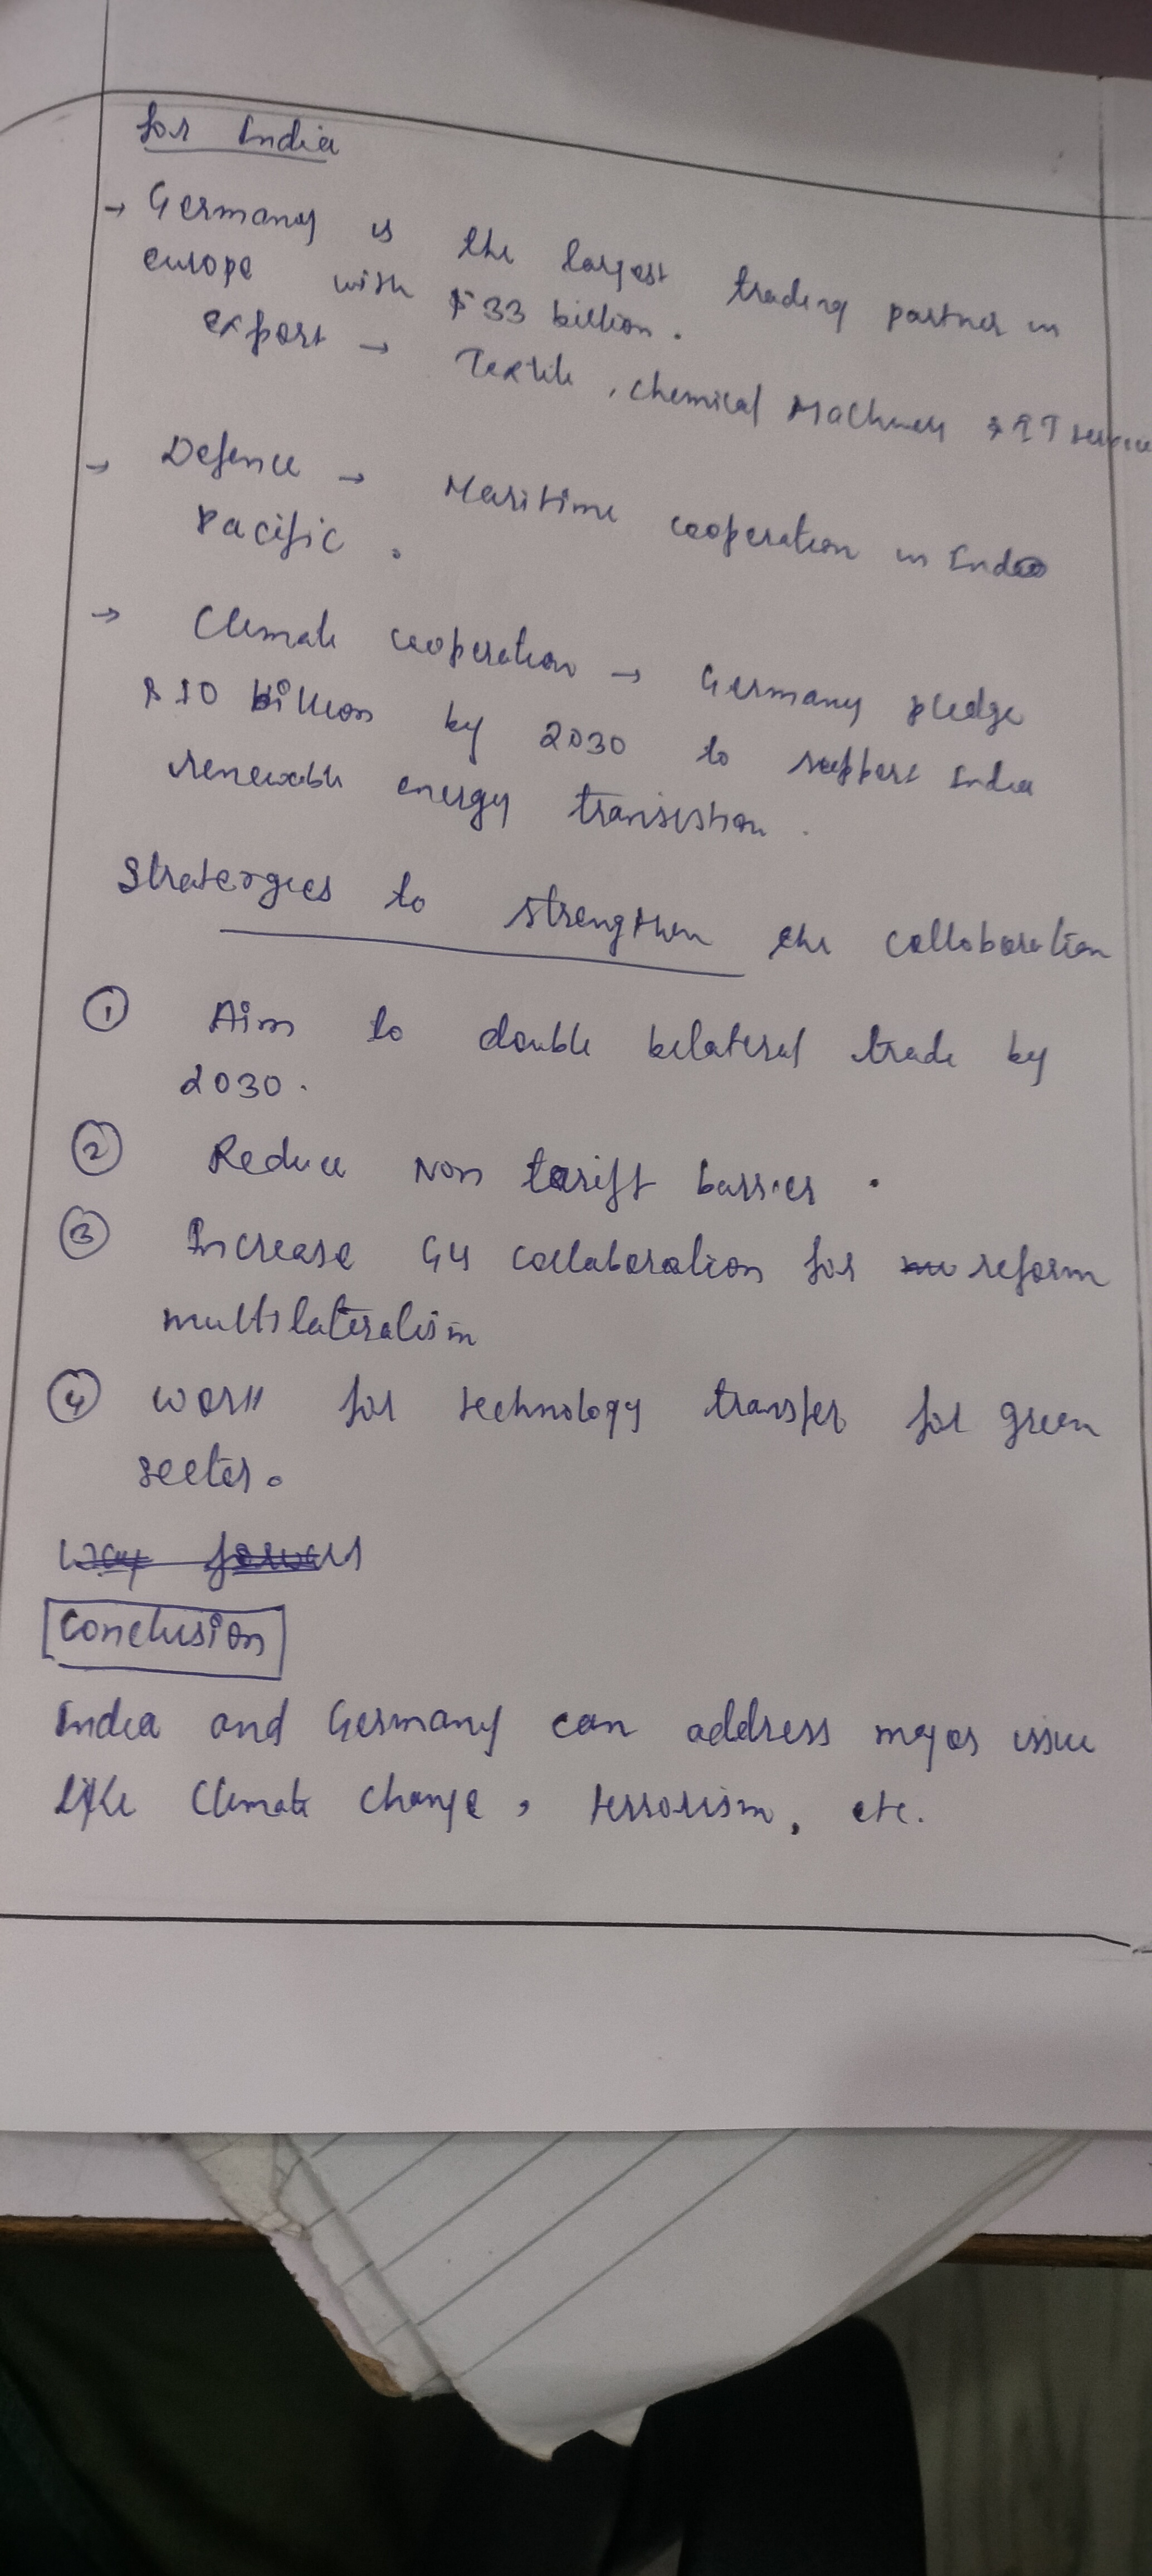 for India
→ Germany is the largest trading partner in
europe with $33 billion.
export → Textile, chemical Machinery & IT service
→ Defence → Maritime cooperation in Indo
Pacific.
→ Climate cooperation → Germany pledge
$10 billion by 2030 to support India
renewable energy transistion.
Stratergies to strengthen the collaboration
① Aim to double bilateral trade by
2030.
② Reduce Non tariff barrier.
③ Increase G4 collaboration for reform
multilateralism
④ work for technology transfer for green
sector.
way forward
Conclusion
India and Germany can address major issue
like Climate change, terrorism, etc.